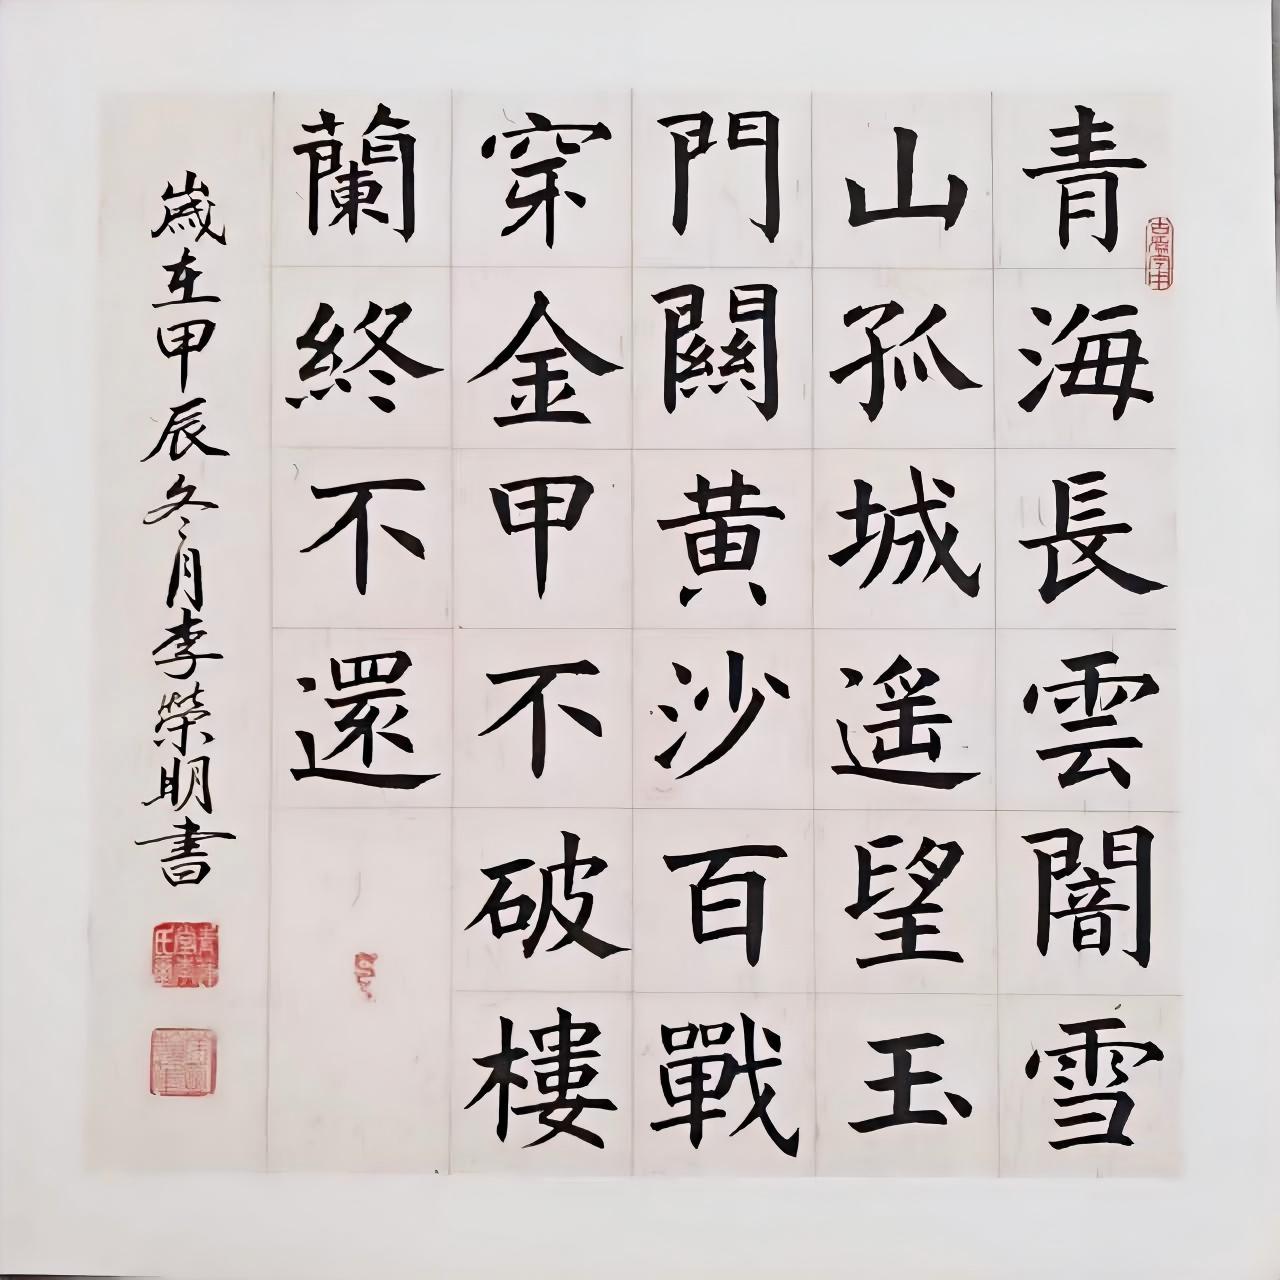 青海長雲闇雪
山孤城遥望玉
門關黄沙百戰
穿金甲不破樓
蘭終不還
歲在甲辰冬月李榮明書